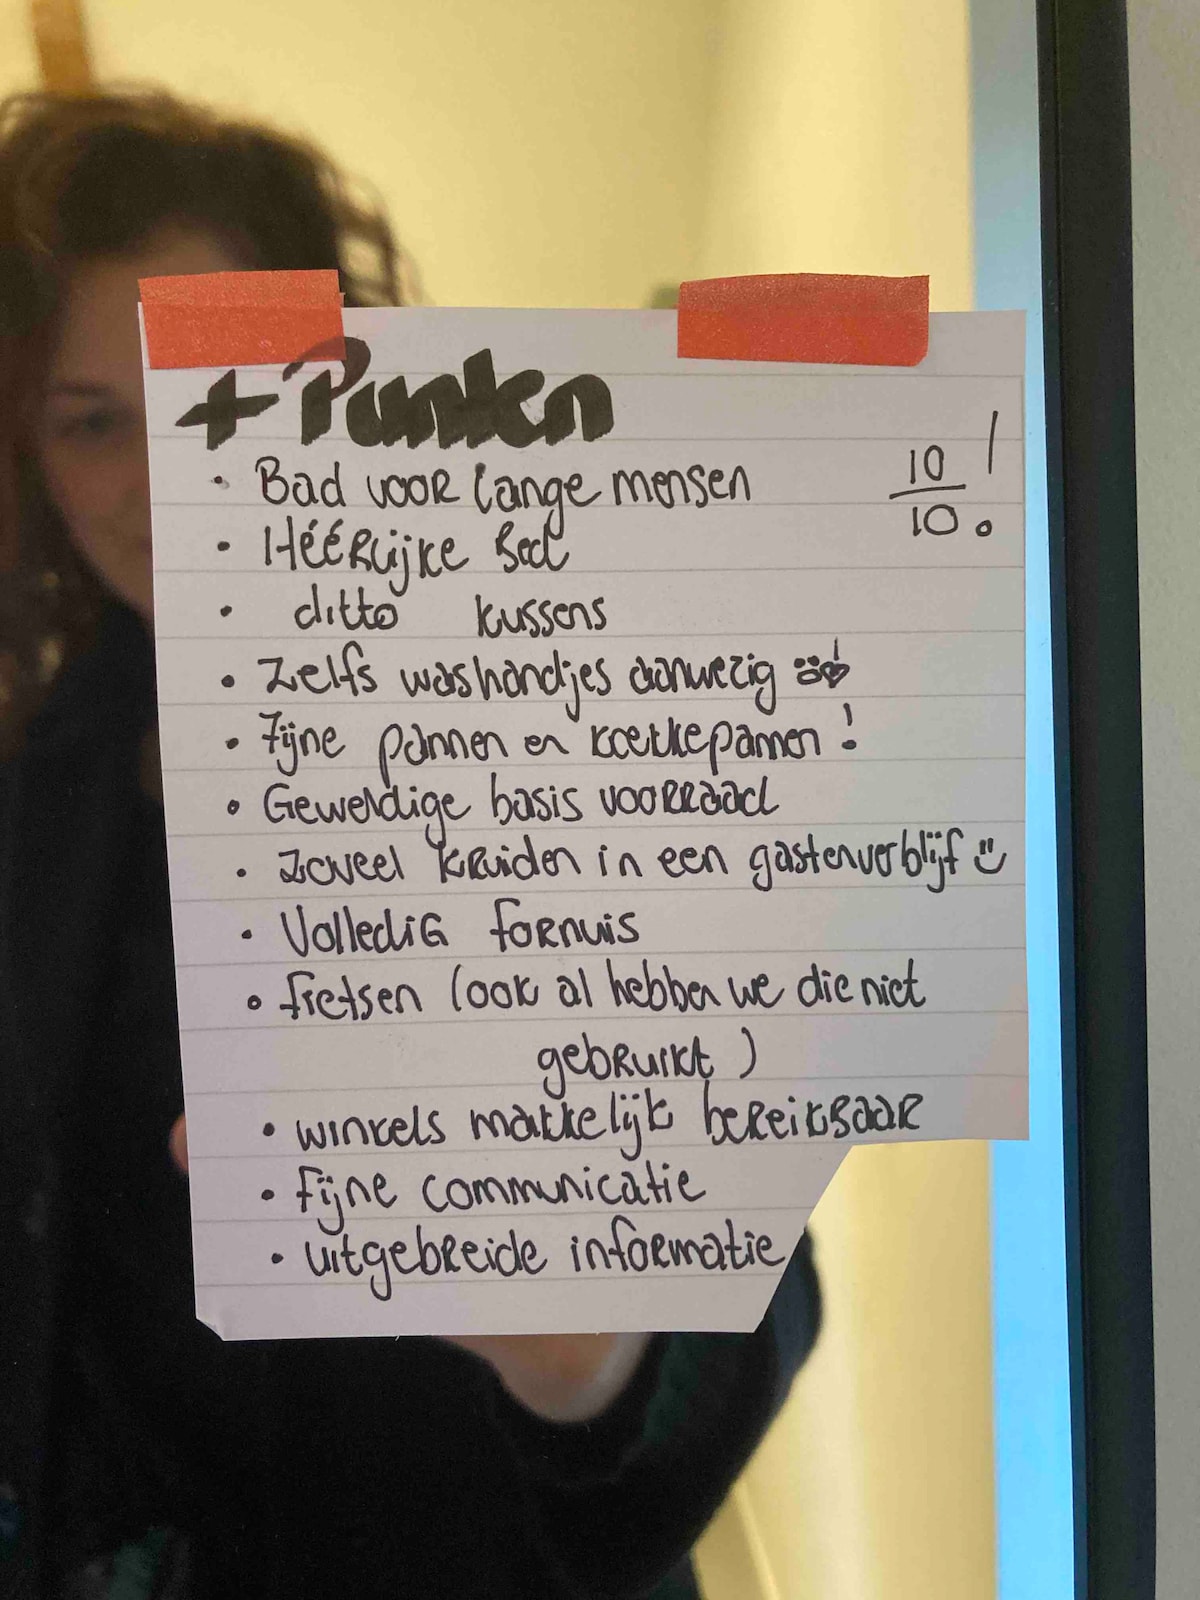 + Punten
10/10!
• Bad voor lange mensen
• Héérlijke Bed
• ditto kussens
• Zelfs washandjes aanwezig
• Fijne pannen en koekkepannen!
• Geweldige basis voorraad
• Zoveel kruiden in een gastenverblijf
• Volledig fornuis
• fietsen (ook al hebben we die niet
gebruikt)
• winkels makkelijk bereikbaar
• fijne communicatie
• uitgebreide informatie